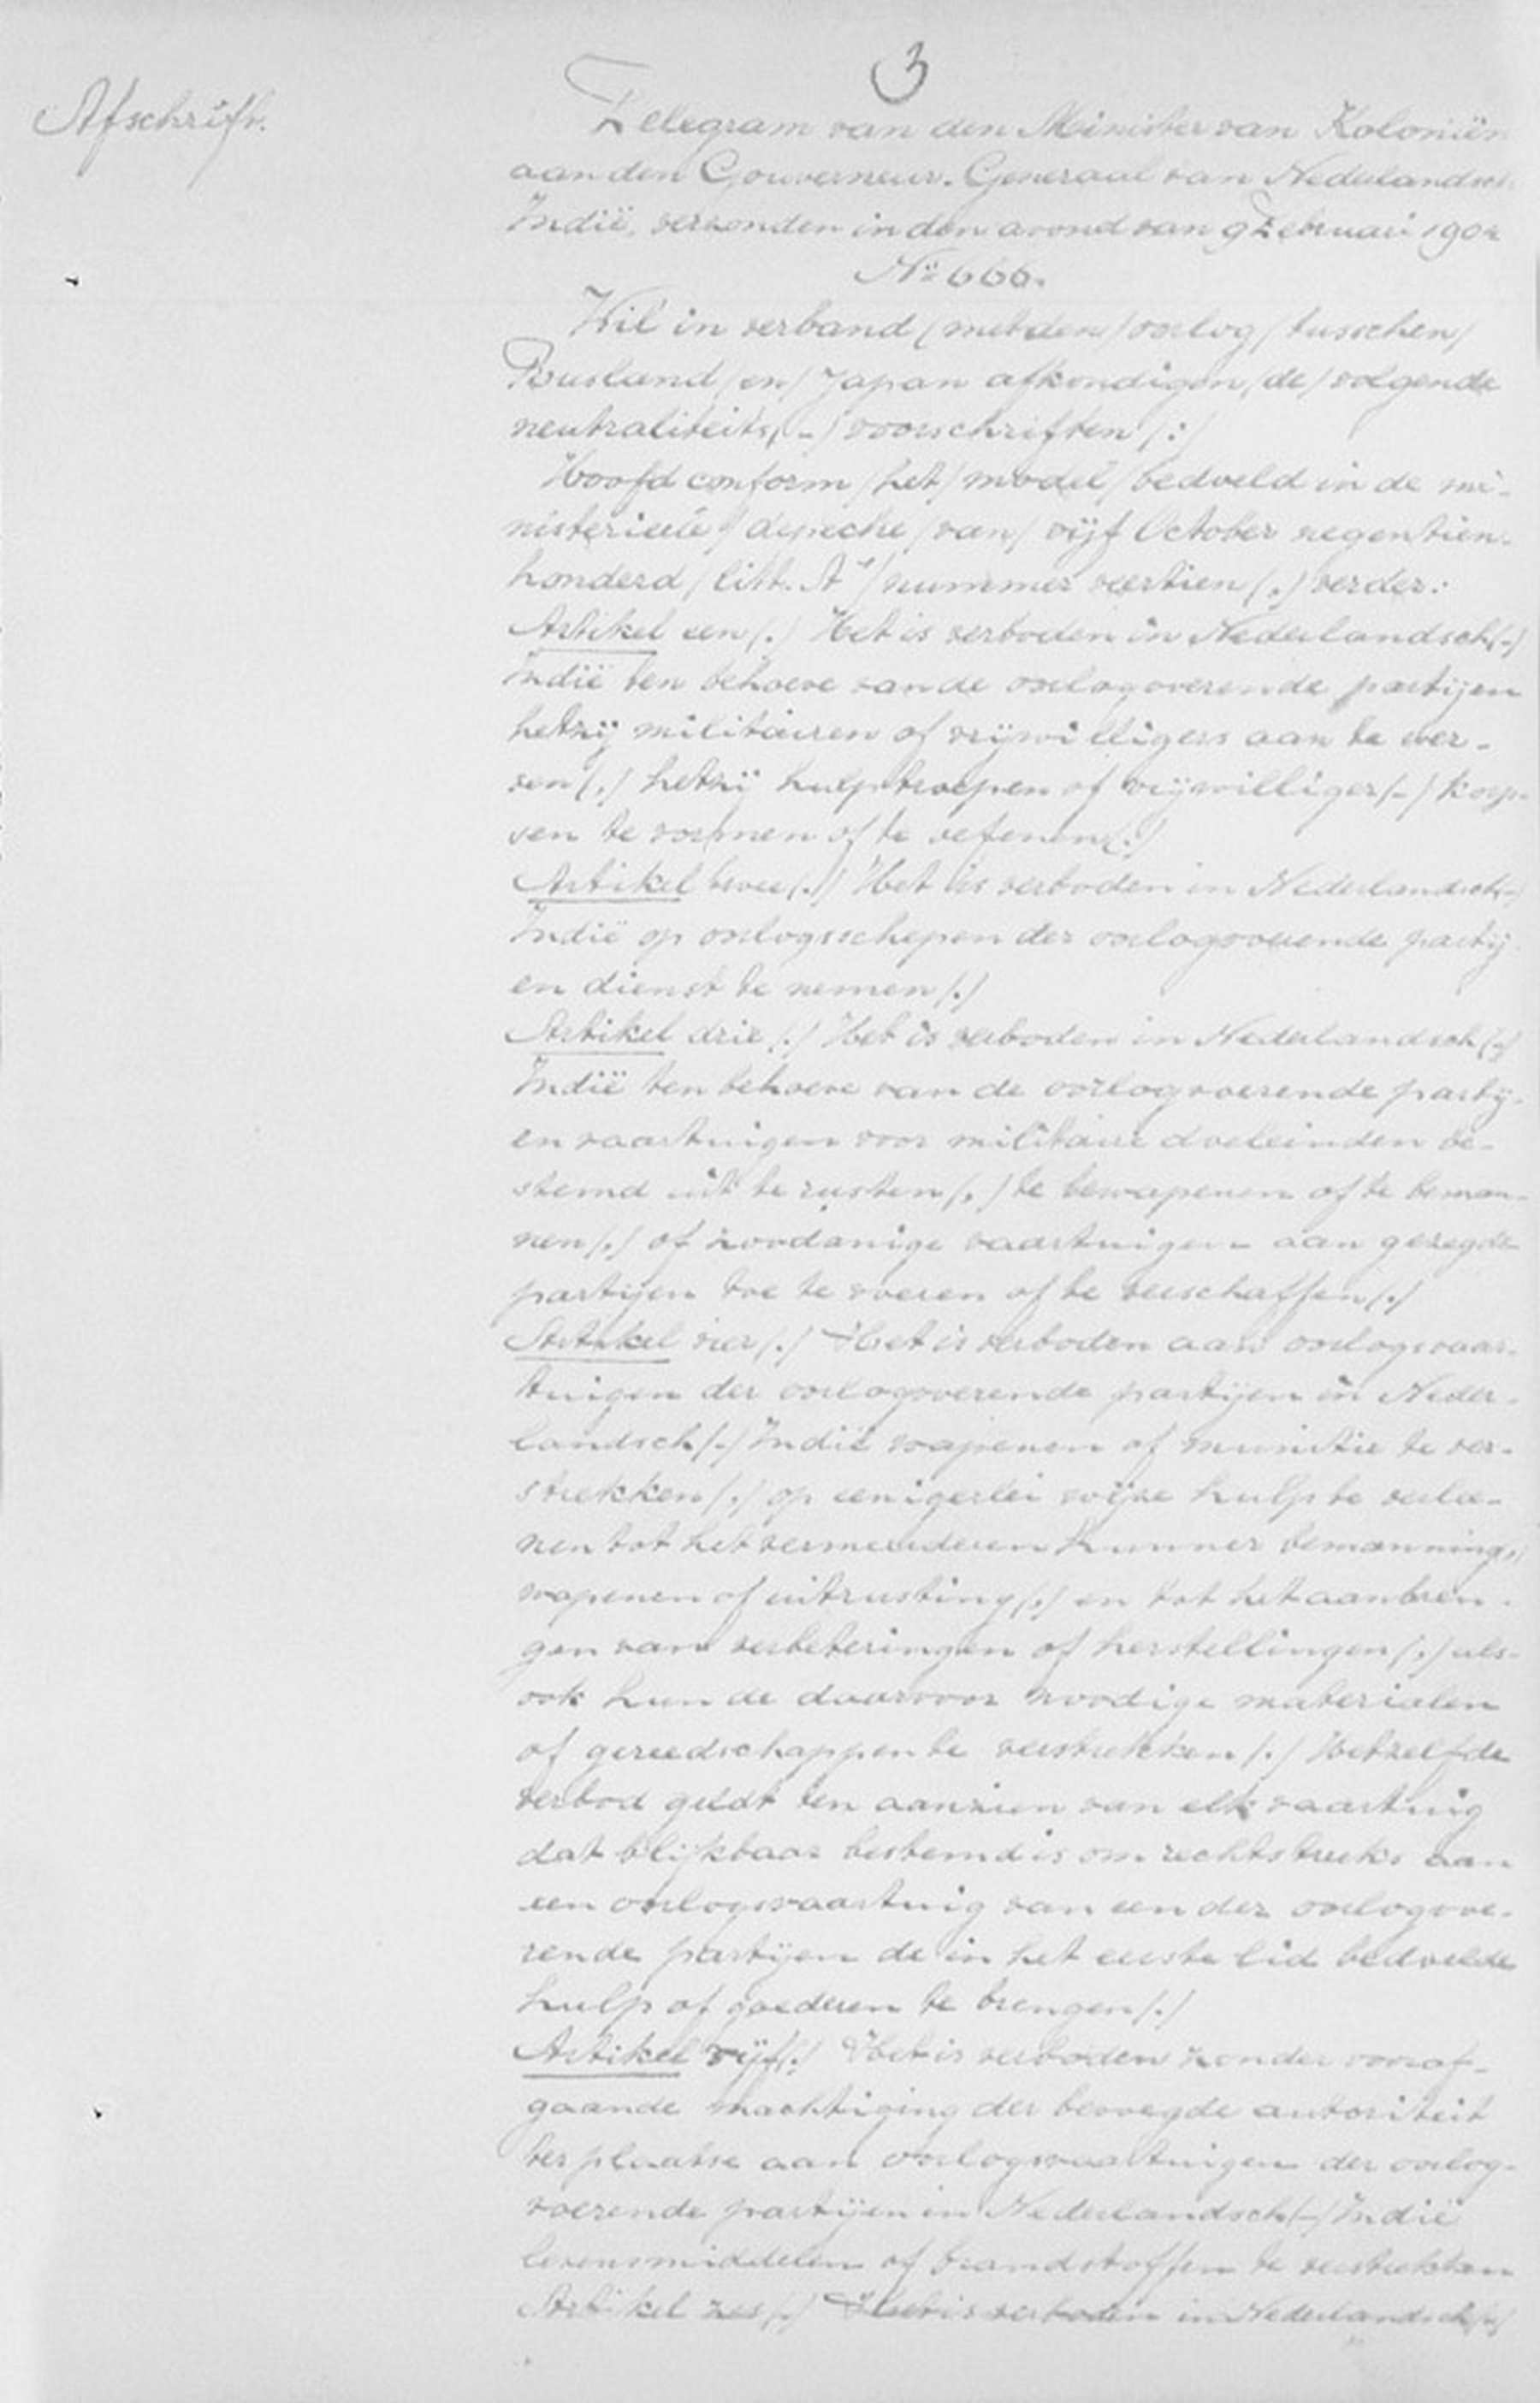 3
Afschrift.
Telegram van den Minister van Koloniën
aan den Gouverneur-Generaal van Nederlandsch
Indië, verzonden in den avond van 9 Februari 1904
No 666.
Wil in verband (met den) oorlog (tusschen)
Rusland (en) Japan afkondigen (de) volgende
neutraliteits(-) voorschriften (:)
Hoofd conform (het) model (bedoeld in de mi-
nisterieele) depeche (van) vijf October negentien-
honderd (litt. A1) nummer veertien (.) verder:
Artikel een (.) Het is verboden in Nederlandsch (-)
Indië ten behoeve van de oorlogvoerende partijen
hetzij militairen of vrijwilligers aan te wer-
ven (,) hetzij hulptroepen of vrijwilliger (-) korp-
sen te vormen of te oefenen (.)
Artikel twee (.) Het is verboden in Nederlandsch (-)
Indië op oorlogsschepen der oorlogvoerende partij-
en dienst te nemen (.)
Artikel drie (.) Het is verboden in Nederlandsch (-)
Indië ten behoeve van de oorlogvoerende partij-
en vaartuigen voor militaire doeleinden be-
stemd uit te rusten (,) te bewapenen of te beman-
nen (,) of zoodanige vaartuigen aan gezegde
partijen toe te voeren of te verschaffen (.)
Artikel vier (.) Het is verboden aan oorlogsvaar-
tuigen der oorlogvoerende partijen in Neder-
landsch (-) Indië wapenen of munitie te ver-
strekken (,) op eenigerlei wijze hulp te verlee-
nen tot het vermeerderen hunner bemanning,
wapenen of uitrusting (,) en tot het aanbren-
gen van verbeteringen of herstellingen (,) als-
ook hun de daarvoor noodige materialen
of gereedschappen te verstrekken (.) Hetzelfde
verbod geldt ten aanzien van elk vaartuig
dat blijkbaar bestemd is om rechtstreeks aan
een oorlogsvaartuig van een der oorlogvoe-
rende partijen de in het eerste lid bedoelde
hulp of goederen te brengen (.)
Artikel vijf (.) Het is verboden zonder vooraf-
gaande machtiging der bevoegde autoriteit
ter plaatse aan oorlogsvaartuigen der oorlog-
voerende partijen in Nederlandsch (-) Indië
levensmiddelen of brandstoffen te verstrekken
Artikel zes (.) Het is verboden in Nederlandsch (-)